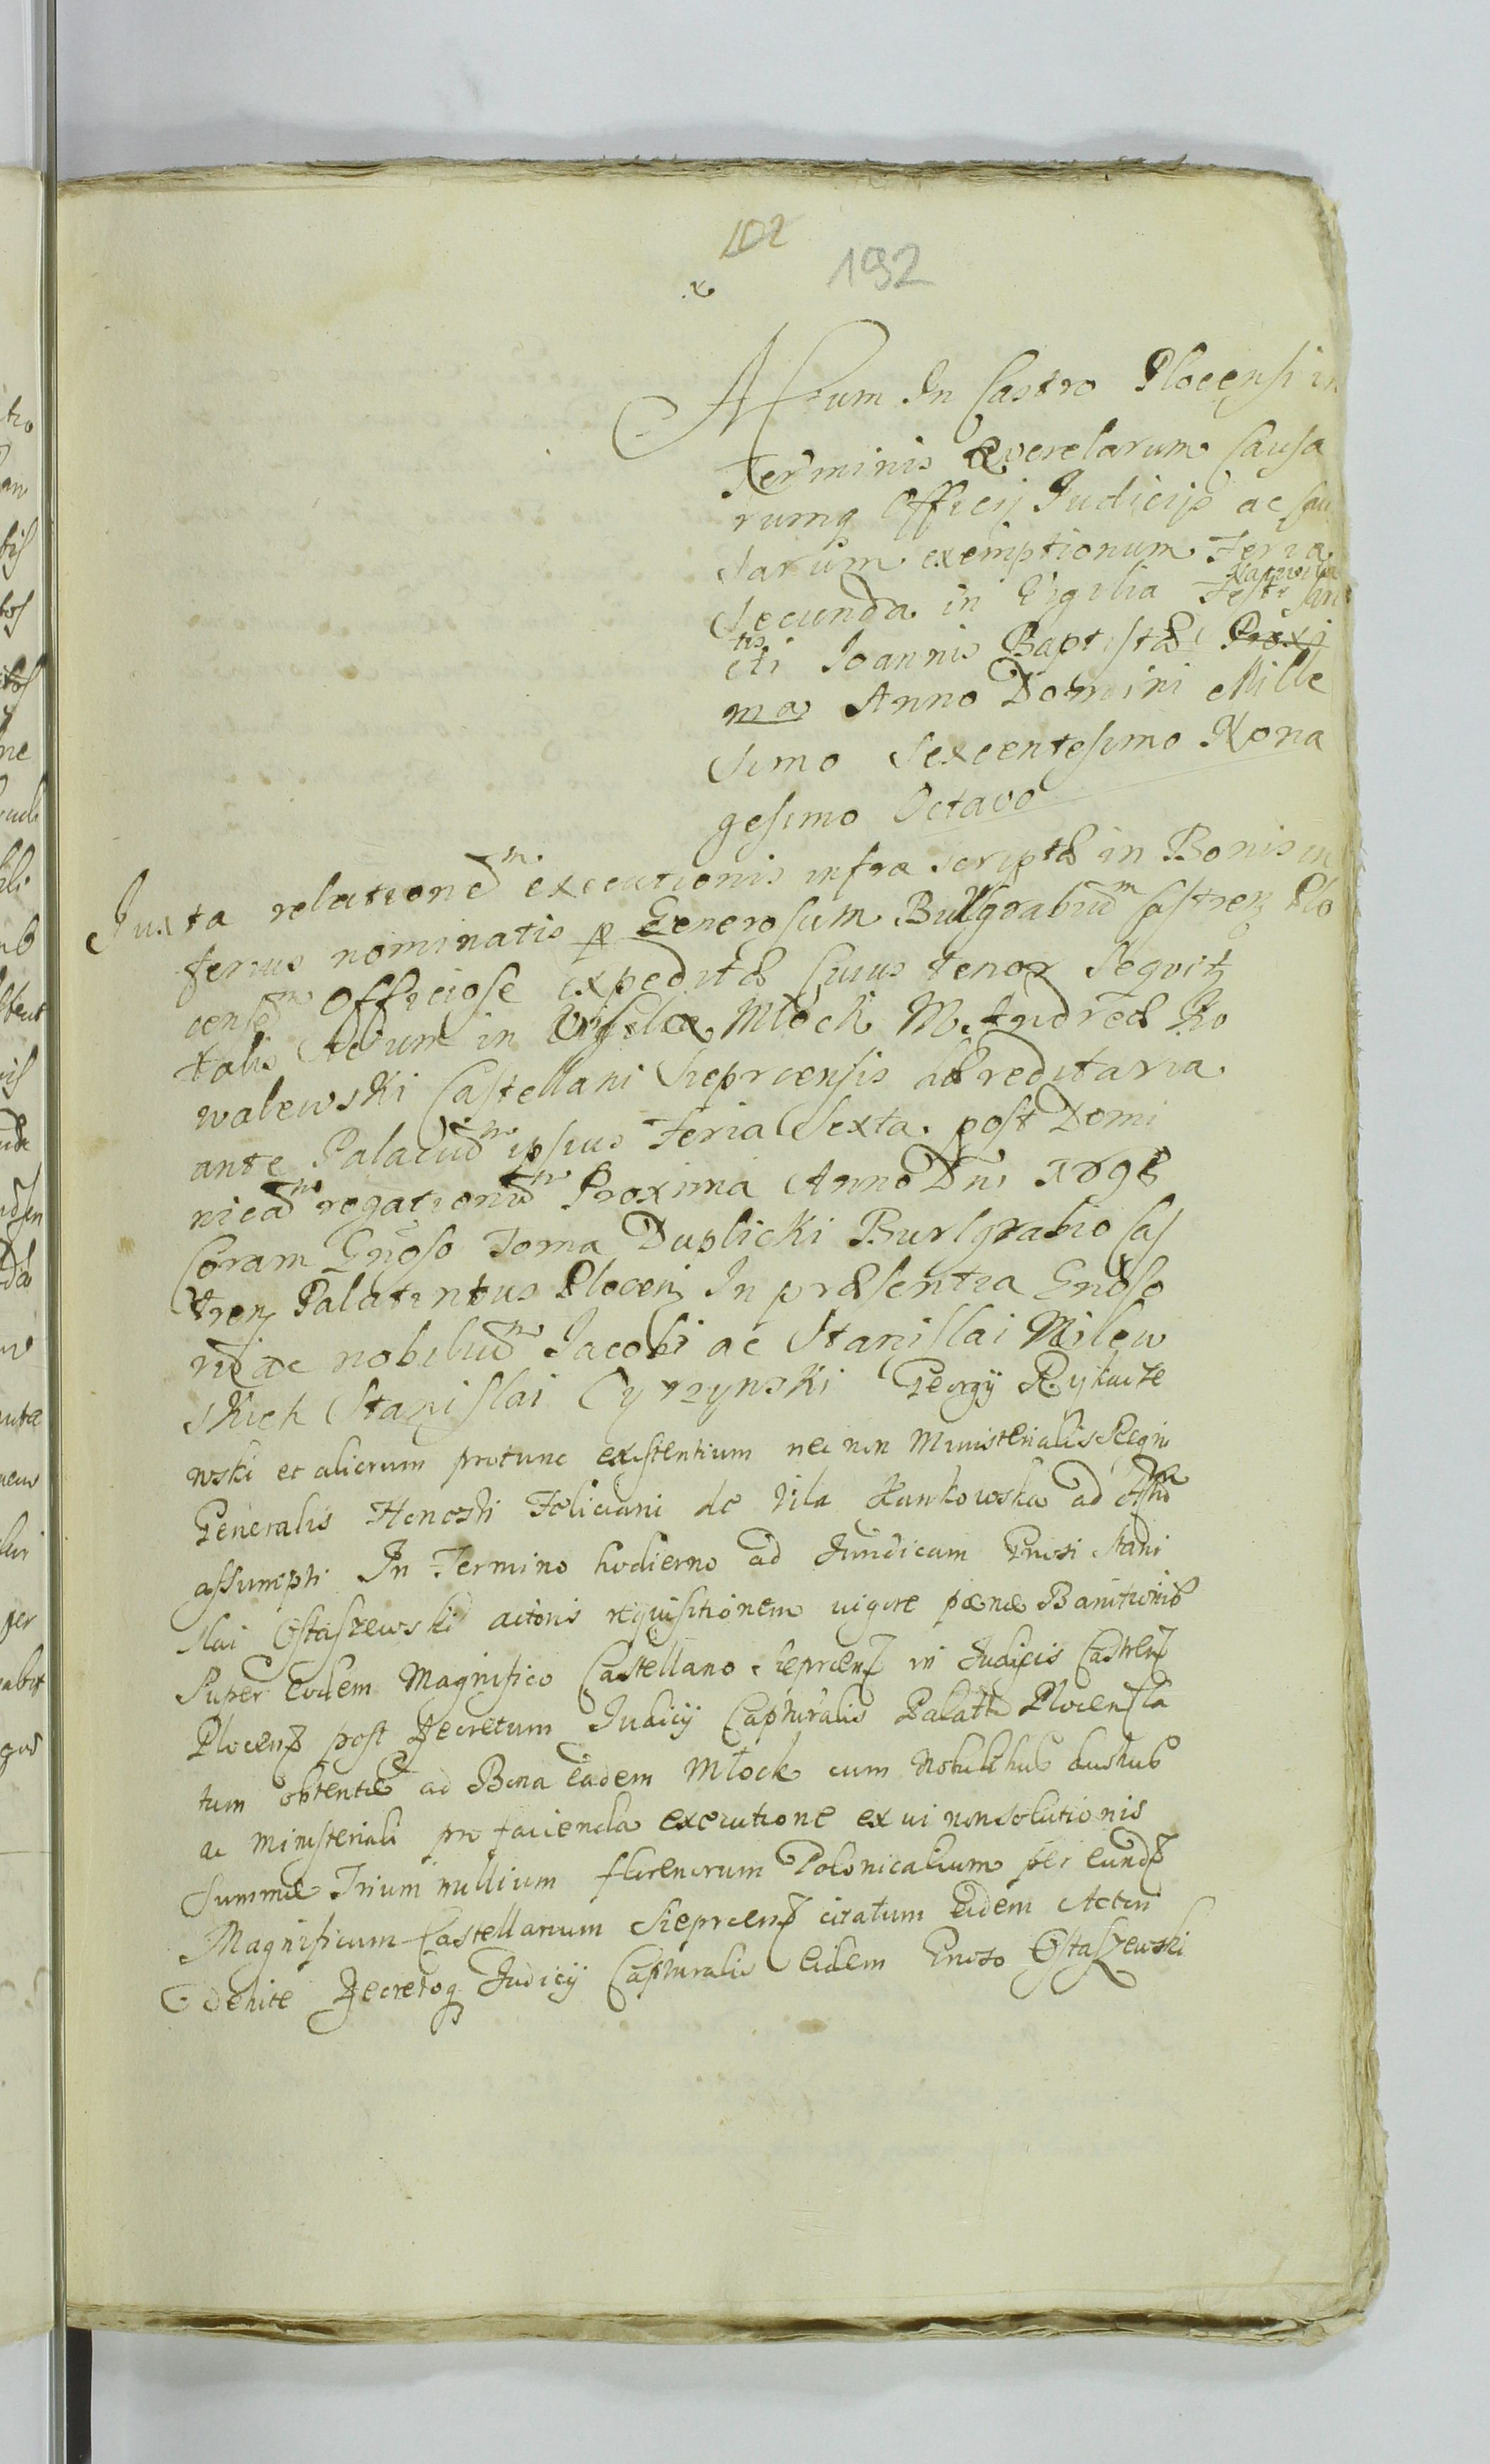 102
192
Actum In Castro Plocensi in
Terminis Qverelarum Causa
rumq Officij Judicijs ac Cau
sarum exemptionum Feria
Secunda in Vigilia Festi Nativita San
tis
cti Joannis Baptistæ Proxi
ma Anno Domini Mille
simo Sexcentesimo Nona
gesimo Octavo
Juxta relationem executionis infra scriptæ in Bonis in
ferius nominatis per Generosum Burgrabium Castren Plo
censem Officiose expeditæ Cuius tenor Seqvitz
talis Actum in Villa Młock M. Andreæ Ko
walewski Castellani Sieprcensis hæreditaria
ante Palacium ipsius Feria Sexta post Domi
nicam rogationum Proxima Anno Dni 1698
Coram Gnoso Toma Duplicki Burgrabio Cas
tren Palatintus Plocen In præsentia Gnoso
rum ac nobilium Jacobi ac Stanislai Milew
skich Stanislai Cyrzynski Georgij Rykacze
wski et aliorum protunc existentium nec non Ministerialis Regni
Generalis Honesti Feliciani de Villa Kunkowska ad Actu
assumpti In Termino hodierno ad Juridicam Gnosi Stani
slai Ostaszewski actoris reqvisitionem vigore pænæ Banitionis
Super eodem Magnifico Castellano Sieprcens in Judicijs Castrens
Plocens post Decretum Judicij Capturalis Palattu Plocens la
tum obtentæ ad Bona eadem Młock cum Nobilibus duobus
ac ministeriali pro facienda executione ex vi non solutionis
Summæ Trium millium florenorum Polonicalium per eunds
Magnificum Castellanum Sieprcens citatum eidem Actori
debitæ Decretoq Judicij Capturalis eidem Gnoso Ostaszewski